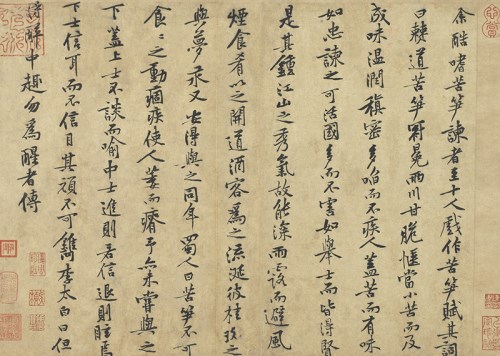 余酷嗜苦筍諫者至十人戲作苦筍賦其詞
曰僰道苦筍冠冕兩川甘脆愜當小苦而及
成味溫潤稹密多啗而不疾人蓋苦而有味
如忠諫之可活國多而不害如舉士而皆得賢
是其鍾江山之秀氣故能深雨露而避風
煙食肴以之開道酒客為之流涎彼桂玫之
與夢永又安得與之同年蜀人曰苦筍不可
食〻之動痼疾使人萎而瘠予亦未嘗與之
下蓋上士不談而喻中士進則若信退則眩焉
下士信耳而不信目其頑不可鐫李太白曰但
得醉中趣勿為醒者傳